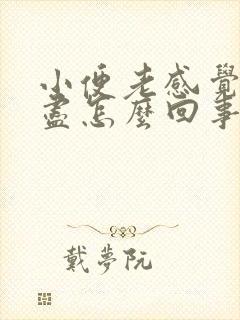 小便老感覺
盡怎麼回事
戴夢阮